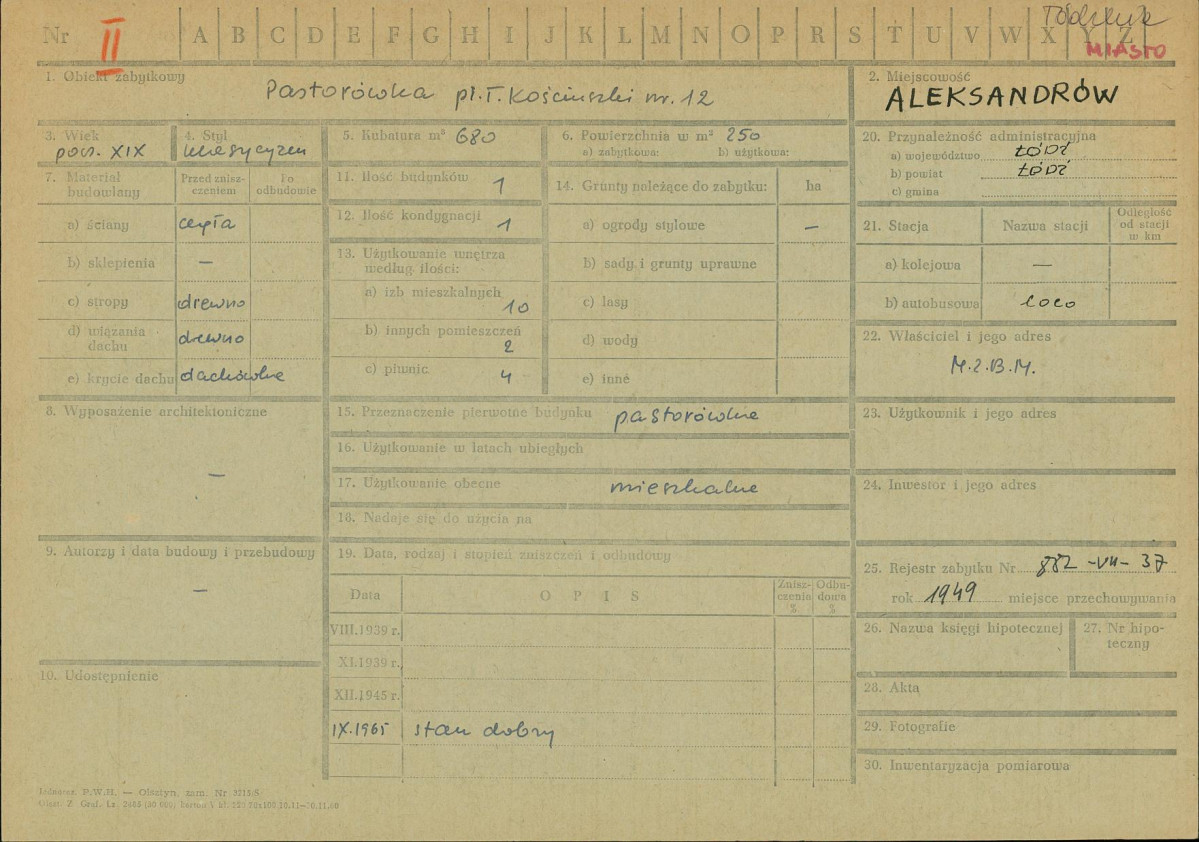 Nr II A B C D E F G H I J K L M N O P R S T U V W X Y Z
MIASTO
1. Obiekt zabytkowy
Pastorówka pl. T. Kościuszki nr. 12
2. Miejscowość
ALEKSANDRÓW
3. Wiek
pocz. XIX
4. Styl
klasycyzm
5. Kubatura m³ 680
6. Powierzchnia w m² 250
a) zabytkowa: b) użytkowa:
7. Materiał budowlany
Przed zniszczeniem
Po odbudowie
a) ściany cegła
b) sklepienia —
c) stropy drewno
d) wiązania dachu drewno
e) krycie dachu dachówka
8. Wyposażenie architektoniczne
—
9. Autorzy i data budowy i przebudowy
—
10. Udostępnienie
11. Ilość budynków 1
12. Ilość kondygnacji 1
13. Użytkowanie wnętrza według ilości:
a) izb mieszkalnych 10
b) innych pomieszczeń 2
c) piwnic 4
14. Grunty należące do zabytku: ha
a) ogrody stylowe —
b) sady i grunty uprawne
c) lasy
d) wody
e) inne
15. Przeznaczenie pierwotne budynku pastorówka
16. Użytkowanie w latach ubiegłych
17. Użytkowanie obecne mieszkalne
18. Nadaje się do użycia na
19. Data, rodzaj i stopień zniszczeń i odbudowy
Data O P I S Zniszczenia % Odbudowa %
VIII.1939 r.
XI.1939 r.
XII.1945 r.
IX.1965 stan dobry
20. Przynależność administracyjna
a) województwo ŁÓDŹ
b) powiat ŁÓDŹ
c) gmina
21. Stacja Nazwa stacji Odległość od stacji w km
a) kolejowa —
b) autobusowa loco
22. Właściciel i jego adres
M.Z.B.M.
23. Użytkownik i jego adres
24. Inwestor i jego adres
25. Rejestr zabytku Nr 882-VII-37
rok 1949 miejsce przechowywania
26. Nazwa księgi hipotecznej
27. Nr hipoteczny
28. Akta
29. Fotografie
30. Inwentaryzacja pomiarowa
P.W.H. — Olsztyn, zam. Nr 3215/S